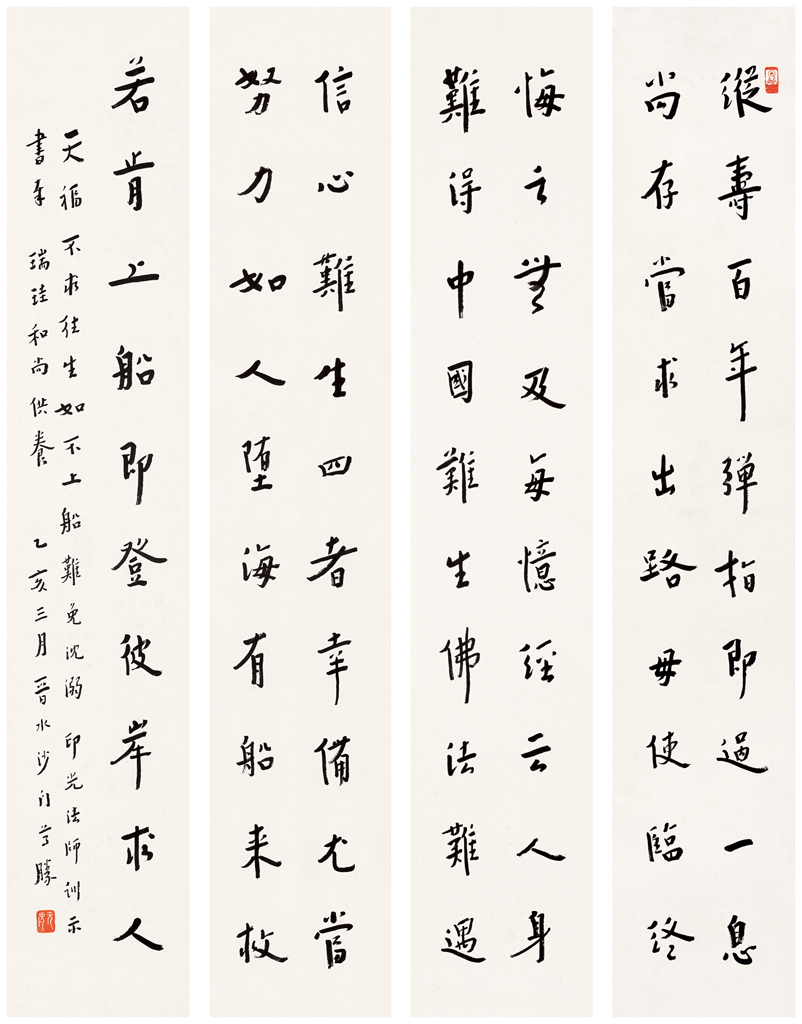 縱壽百年彈指即過一息
尚存當求出路毋使臨終
悔之無及每憶經云人身
難得中國難生佛法難遇
信心難生四者幸備尤當
努力如人堕海有船来救
若肯上船即登彼岸求人
天福不求往生如不上船難免沈溺 印光法師訓示
書奉 瑞珪和尚供養 乙亥三月晉水沙門尊勝